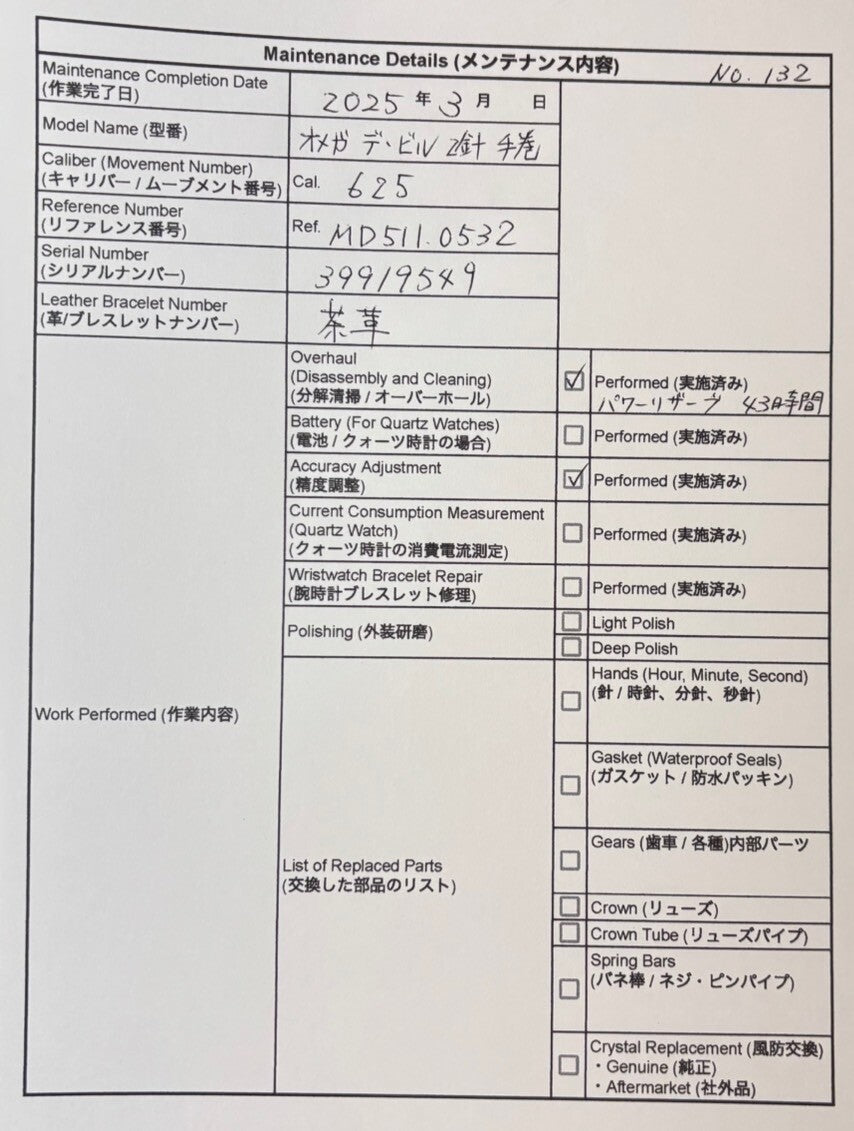 Maintenance Details (メンテナンス内容)
No. 132
Maintenance Completion Date
(作業完了日)
2025 年 3 月 日
Model Name (型番)
オメガ デ・ビル 2針 手巻
Caliber (Movement Number)
(キャリバー / ムーブメント番号)
Cal. 625
Reference Number
(リファレンス番号)
Ref. MD511.0532
Serial Number
(シリアルナンバー)
39919549
Leather Bracelet Number
(革/ブレスレットナンバー)
茶革
Work Performed (作業内容)
Overhaul
(Disassembly and Cleaning)
(分解清掃 / オーバーホール)
Performed (実施済み)
パワーリザーブ 43時間
Battery (For Quartz Watches)
(電池 / クォーツ時計の場合)
Performed (実施済み)
Accuracy Adjustment
(精度調整)
Performed (実施済み)
Current Consumption Measurement
(Quartz Watch)
(クォーツ時計の消費電流測定)
Performed (実施済み)
Wristwatch Bracelet Repair
(腕時計ブレスレット修理)
Performed (実施済み)
Polishing (外装研磨)
Light Polish
Deep Polish
List of Replaced Parts
(交換した部品のリスト)
Hands (Hour, Minute, Second)
(針 / 時針、分針、秒針)
Gasket (Waterproof Seals)
(ガスケット / 防水パッキン)
Gears (歯車 / 各種)内部パーツ
Crown (リューズ)
Crown Tube (リューズパイプ)
Spring Bars
(バネ棒 / ネジ・ピンパイプ)
Crystal Replacement (風防交換)
・Genuine (純正)
・Aftermarket (社外品)